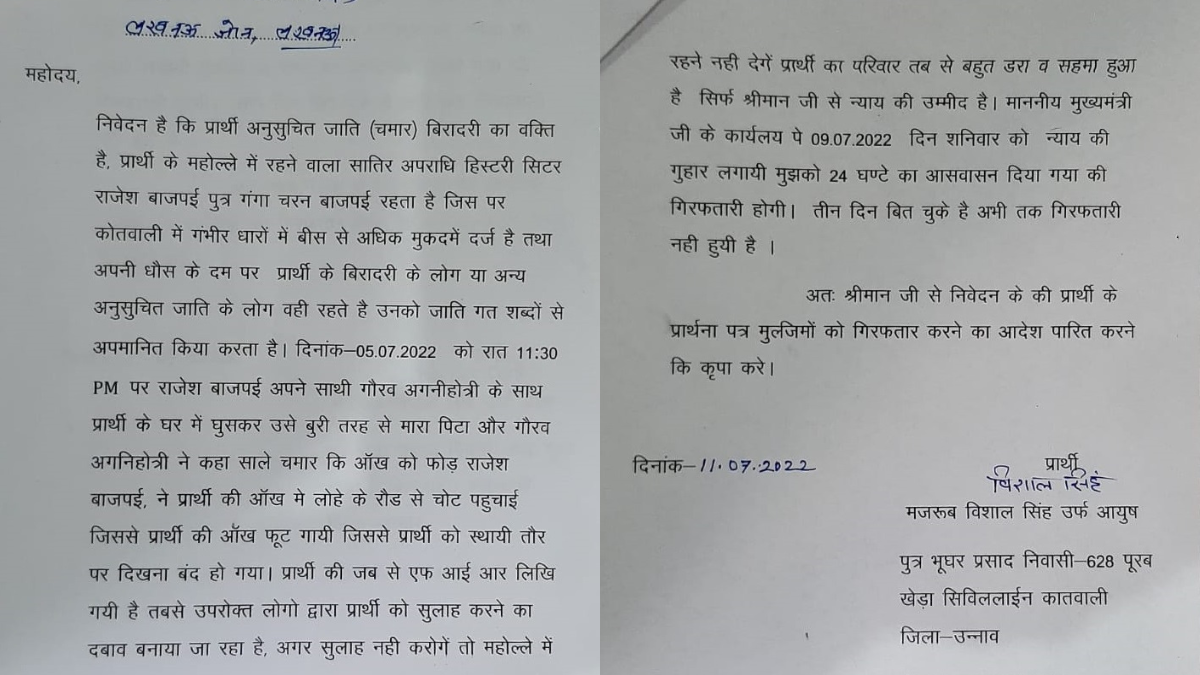 लखनऊ जोन, लखनऊ
महोदय,
निवेदन है कि प्रार्थी अनुसुचित जाति (चमार) बिरादरी का वक्ति
है, प्रार्थी के महोल्ले में रहने वाला सातिर अपराधि हिस्टरी सिटर
राजेश बाजपई पुत्र गंगा चरन बाजपई रहता है जिस पर
कोतवाली में गंभीर धारों में बीस से अधिक मुकदमें दर्ज है तथा
अपनी धौस के दम पर प्रार्थी के बिरादरी के लोग या अन्य
अनुसुचित जाति के लोग वही रहते है उनको जाति गत शब्दों से
अपमानित किया करता है। दिनांक–05.07.2022 को रात 11:30
PM पर राजेश बाजपई अपने साथी गौरव अगनीहोत्री के साथ
प्रार्थी के घर में घुसकर उसे बुरी तरह से मारा पिटा और गौरव
अगनिहोत्री ने कहा साले चमार कि ऑख को फोड़ राजेश
बाजपई, ने प्रार्मी की ऑख मे लोहे के रौड से चोट पहुचाई
जिससे प्रार्थी की ऑख फूट गायी जिससे प्रार्थी को स्थायी तौर
पर दिखना बंद हो गया। प्रार्थी की जब से एफ आई आर लिखि
गयी है तबसे उपरोक्त लोगो द्वारा प्रार्थी को सुलाह करने का
दबाव बनाया जा रहा है, अगर सुलाह नही करोगें तो महोल्ले में
रहने नही देगें प्रार्थी का परिवार तब से बहुत डरा व सहमा हुआ
है सिर्फ श्रीमान जी से न्याय की उम्मीद है। माननीय मुख्यमंत्री
जी के कार्यलय पे 09.07.2022 दिन शनिवार को न्याय की
गुहार लगायी मुझको 24 घण्टे का आसवासन दिया गया की
गिरफतारी होगी। तीन दिन बित चुके है अभी तक गिरफतारी
नही हुयी है ।
अतः श्रीमान जी से निवेदन के की प्रार्थी के
प्रार्थना पत्र मुल्जिमों को गिरफतार करने का आदेश पारित करने
कि कृपा करे।
दिनांक–11.07.2022
प्रार्थी
विशाल सिहं
मजरूब विशाल सिंह उर्फ आयुष
पुत्र भूघर प्रसाद निवासी–628 पूरब
खेड़ा सिविललाईन कातवाली
जिला–उन्नाव